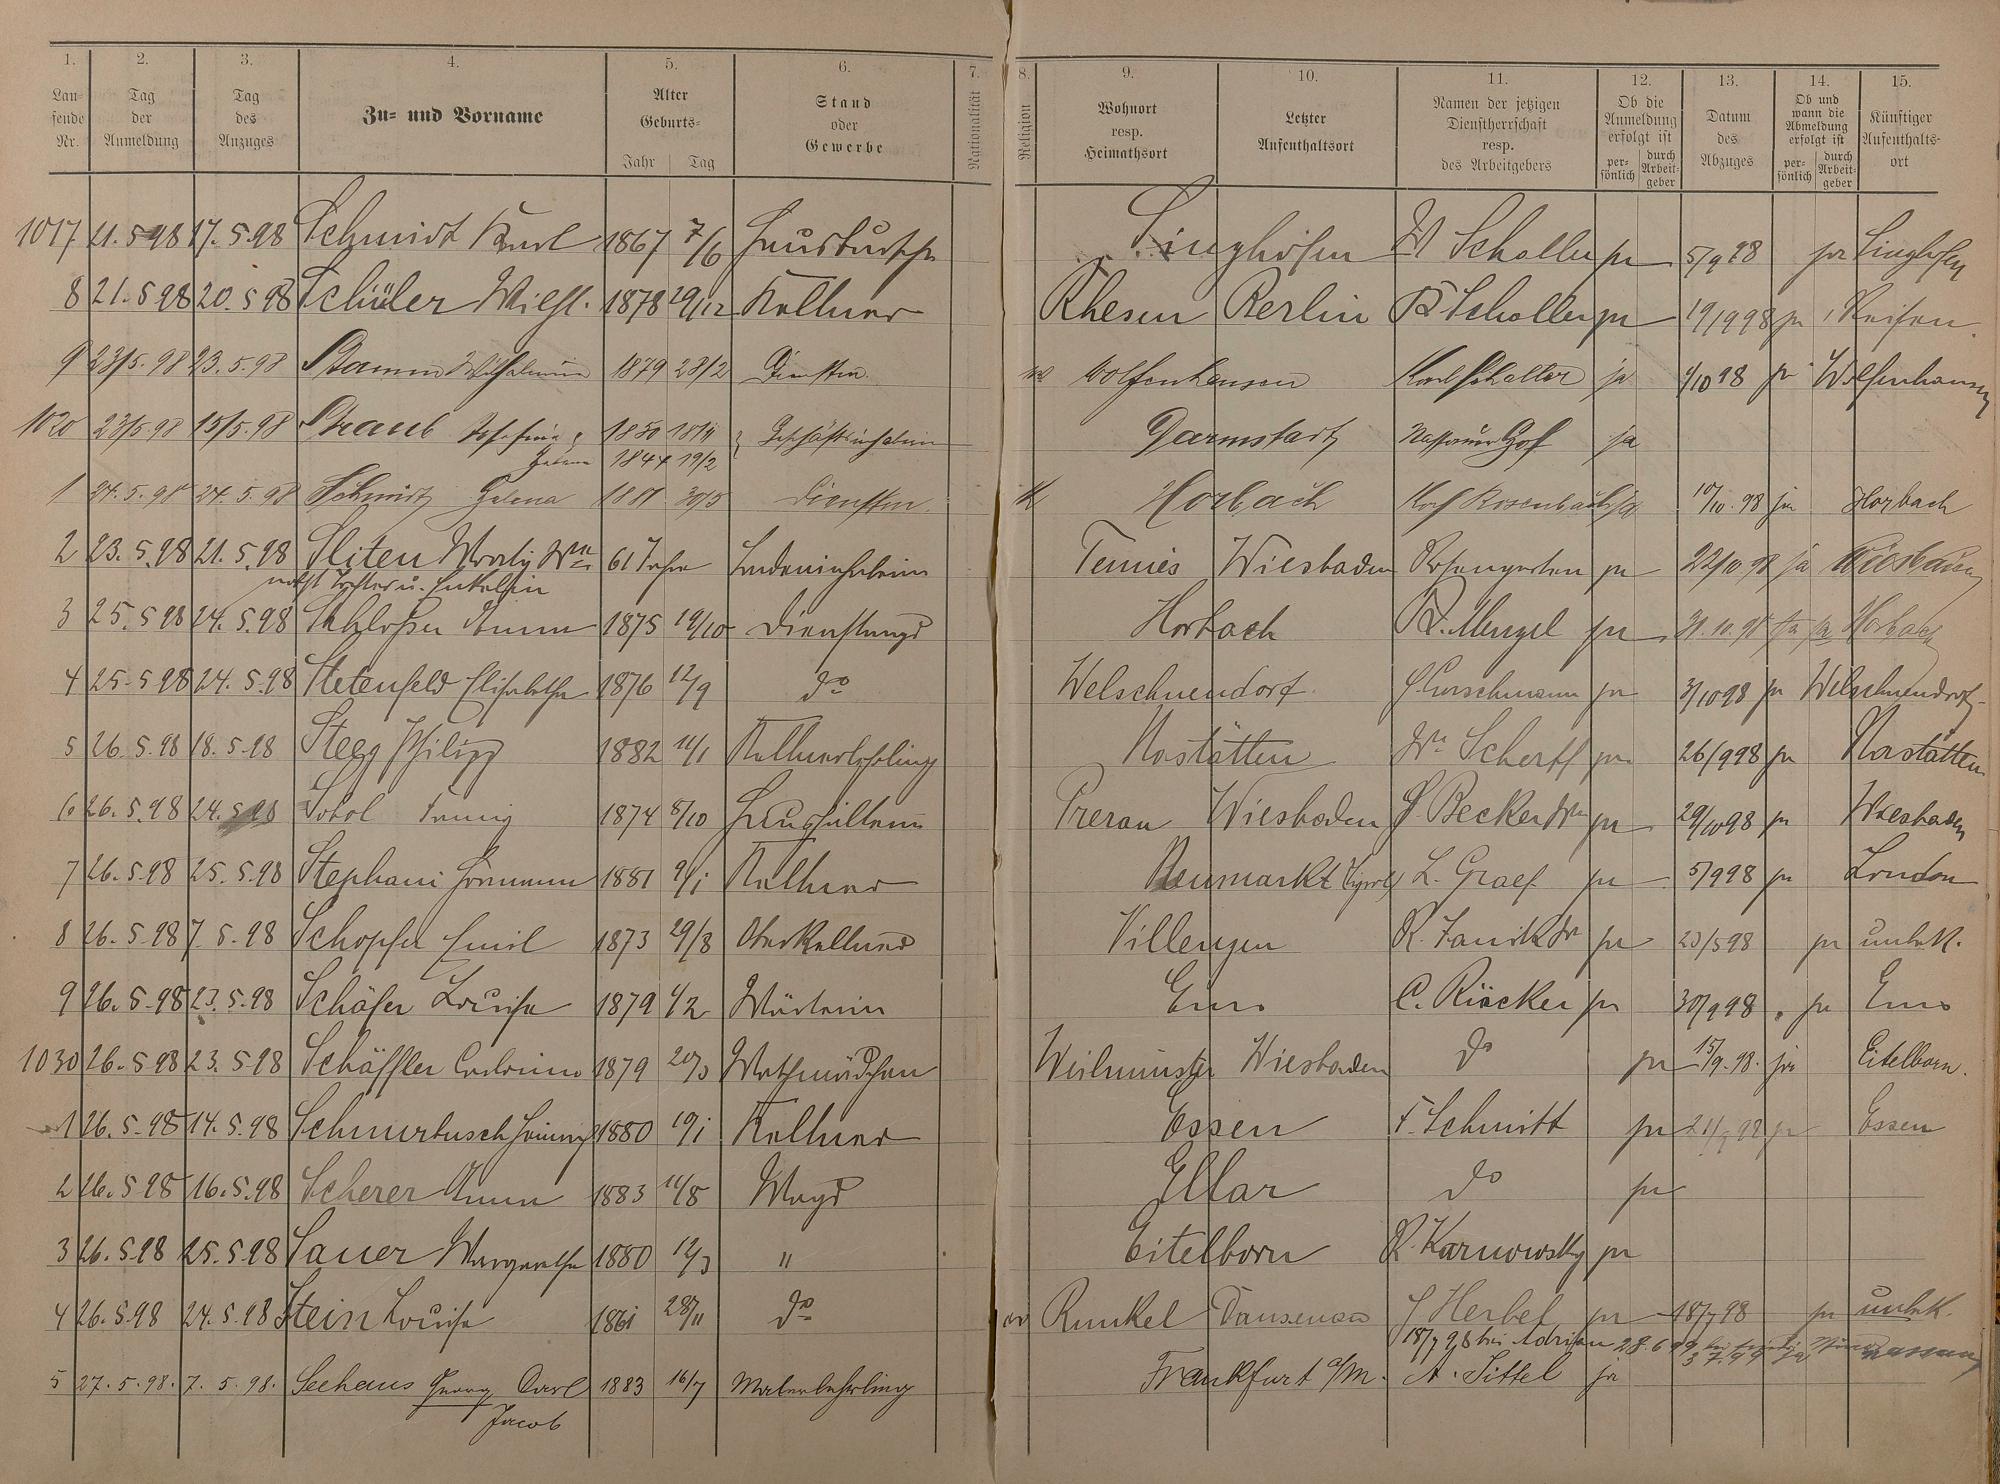 1. 2. 3. 4. 5. 6. 7. 8. 9. 10. 11. 12. 13. 14. 15.
Laufende Nr. Tag der Anmeldung Tag des Anzuges Zu- und Vorname Alter Geburts- Jahr Tag Stand oder Gewerbe Nationalität Religion Wohnort resp. Heimathsort Letzter Aufenthaltsort Namen der jetzigen Dienstherrschaft resp. des Arbeitgebers Ob die Anmeldung erfolgt ist persönlich durch Arbeitgeber Datum des Abzuges Ob und wann die Abmeldung erfolgt ist persönlich durch Arbeitgeber Künftiger Aufenthaltsort
1017 21.5.98 17.5.98 Schmidt Karl 1867 7/6 Hausbursche Singhofen W Scholler ja 5/9 98 ja Singhofen
8 21.5.98 20.5.98 Schüler Wilh. 1878 29/12 Kellner Rhesen Berlin Scholler ja 19/9 98 ja Reisen
9 23/5.98 23.5.98 Stamm Wilhelmine 1879 23/2 Dienstm. Wolfenhausen Karl Schaller ja 1/10 98 ja Wolfenhausen
1020 23/5.98 15/5.98 Straub Josefine 1850 Geschäftsinhaberin Darmstadt Nassauer Hof ja
1844 19/2
1 24.5.98 24.5.98 Schmidt Helena 1881 30/5 Dienstm. K Horbach Rosenbach ja 10/10.98 ja Horbach
2 23.5.98 21.5.98 Wwe 61 Jahre Ladeninhaberin Tennis Wiesbaden Rosengarten ja 22/10 98 ja Wiesbaden
nebst Tochter u. Enkelin
3 25.5.98 24.5.98 Schloßer Anna 1875 19/10 Dienstmagd Horbach R. Menzel ja 31.10.98 ja Horbach
4 25.5.98 24.5.98 Stetenfeld Elisabetha 1876 12/9 do Welschneudorf ja 3/10 98 ja Welschneudorf
5 26.5.98 18.5.98 Steeg Philipp 1882 11/1 Kellnerlehrling Nastätten We Scherff ja 26/9 98 ja Nastätten
6 26.5.98 24.5.98 Sobol Fanny 1874 8/10 Haushälterin Prerau Wiesbaden J. Becker We ja 29/10 98 ja Wiesbaden
7 26.5.98 25.5.98 Stephani Hermann 1881 9/1 Kellner Neumarkt (Tyrol) L. Graef ja 5/9 98 ja London
8 26.5.98 7.5.98 Schopfer Emil 1873 29/8 Oberkellner Villengen ja 23/5 98 ja unbek.
9 26.5.98 23.5.98 Schäfer Louise 1879 1/2 Wärterin Ems C. Rücker ja 30/9 98 ja Ems
1030 26.5.98 23.5.98 Schäffler Caroline 1879 20/3 Waschmädchen Weilmünster Wiesbaden do ja 15/9.98. ja Eitelborn.
1 26.5.98 14.5.98 Schnurbusch 1880 19/1 Kellner Essen F. Schmitt ja 21/9 98 ja Essen
2 26.5.98 16.5.98 Scherer Anna 1883 11/8 Magd Ellar do ja
3 26.5.98 25.5.98 Sauer Margaretha 1880 12/3 " Eitelborn R. Karnowsky ja
4 26.5.98 24.5.98 Stein Louise 1861 28/11 do ev Runkel Dausenau J Herbel ja 18/7 98 ja unbek.
18/7 98 bei Adrian 28.6.99 3.7.99 ja Nassau
5 27.5.98. 7.5.98. Seehaus Georg Carl 1883 16/7 Malerlehrling Frankfurt a/M. A. Sittel ja
Jacob